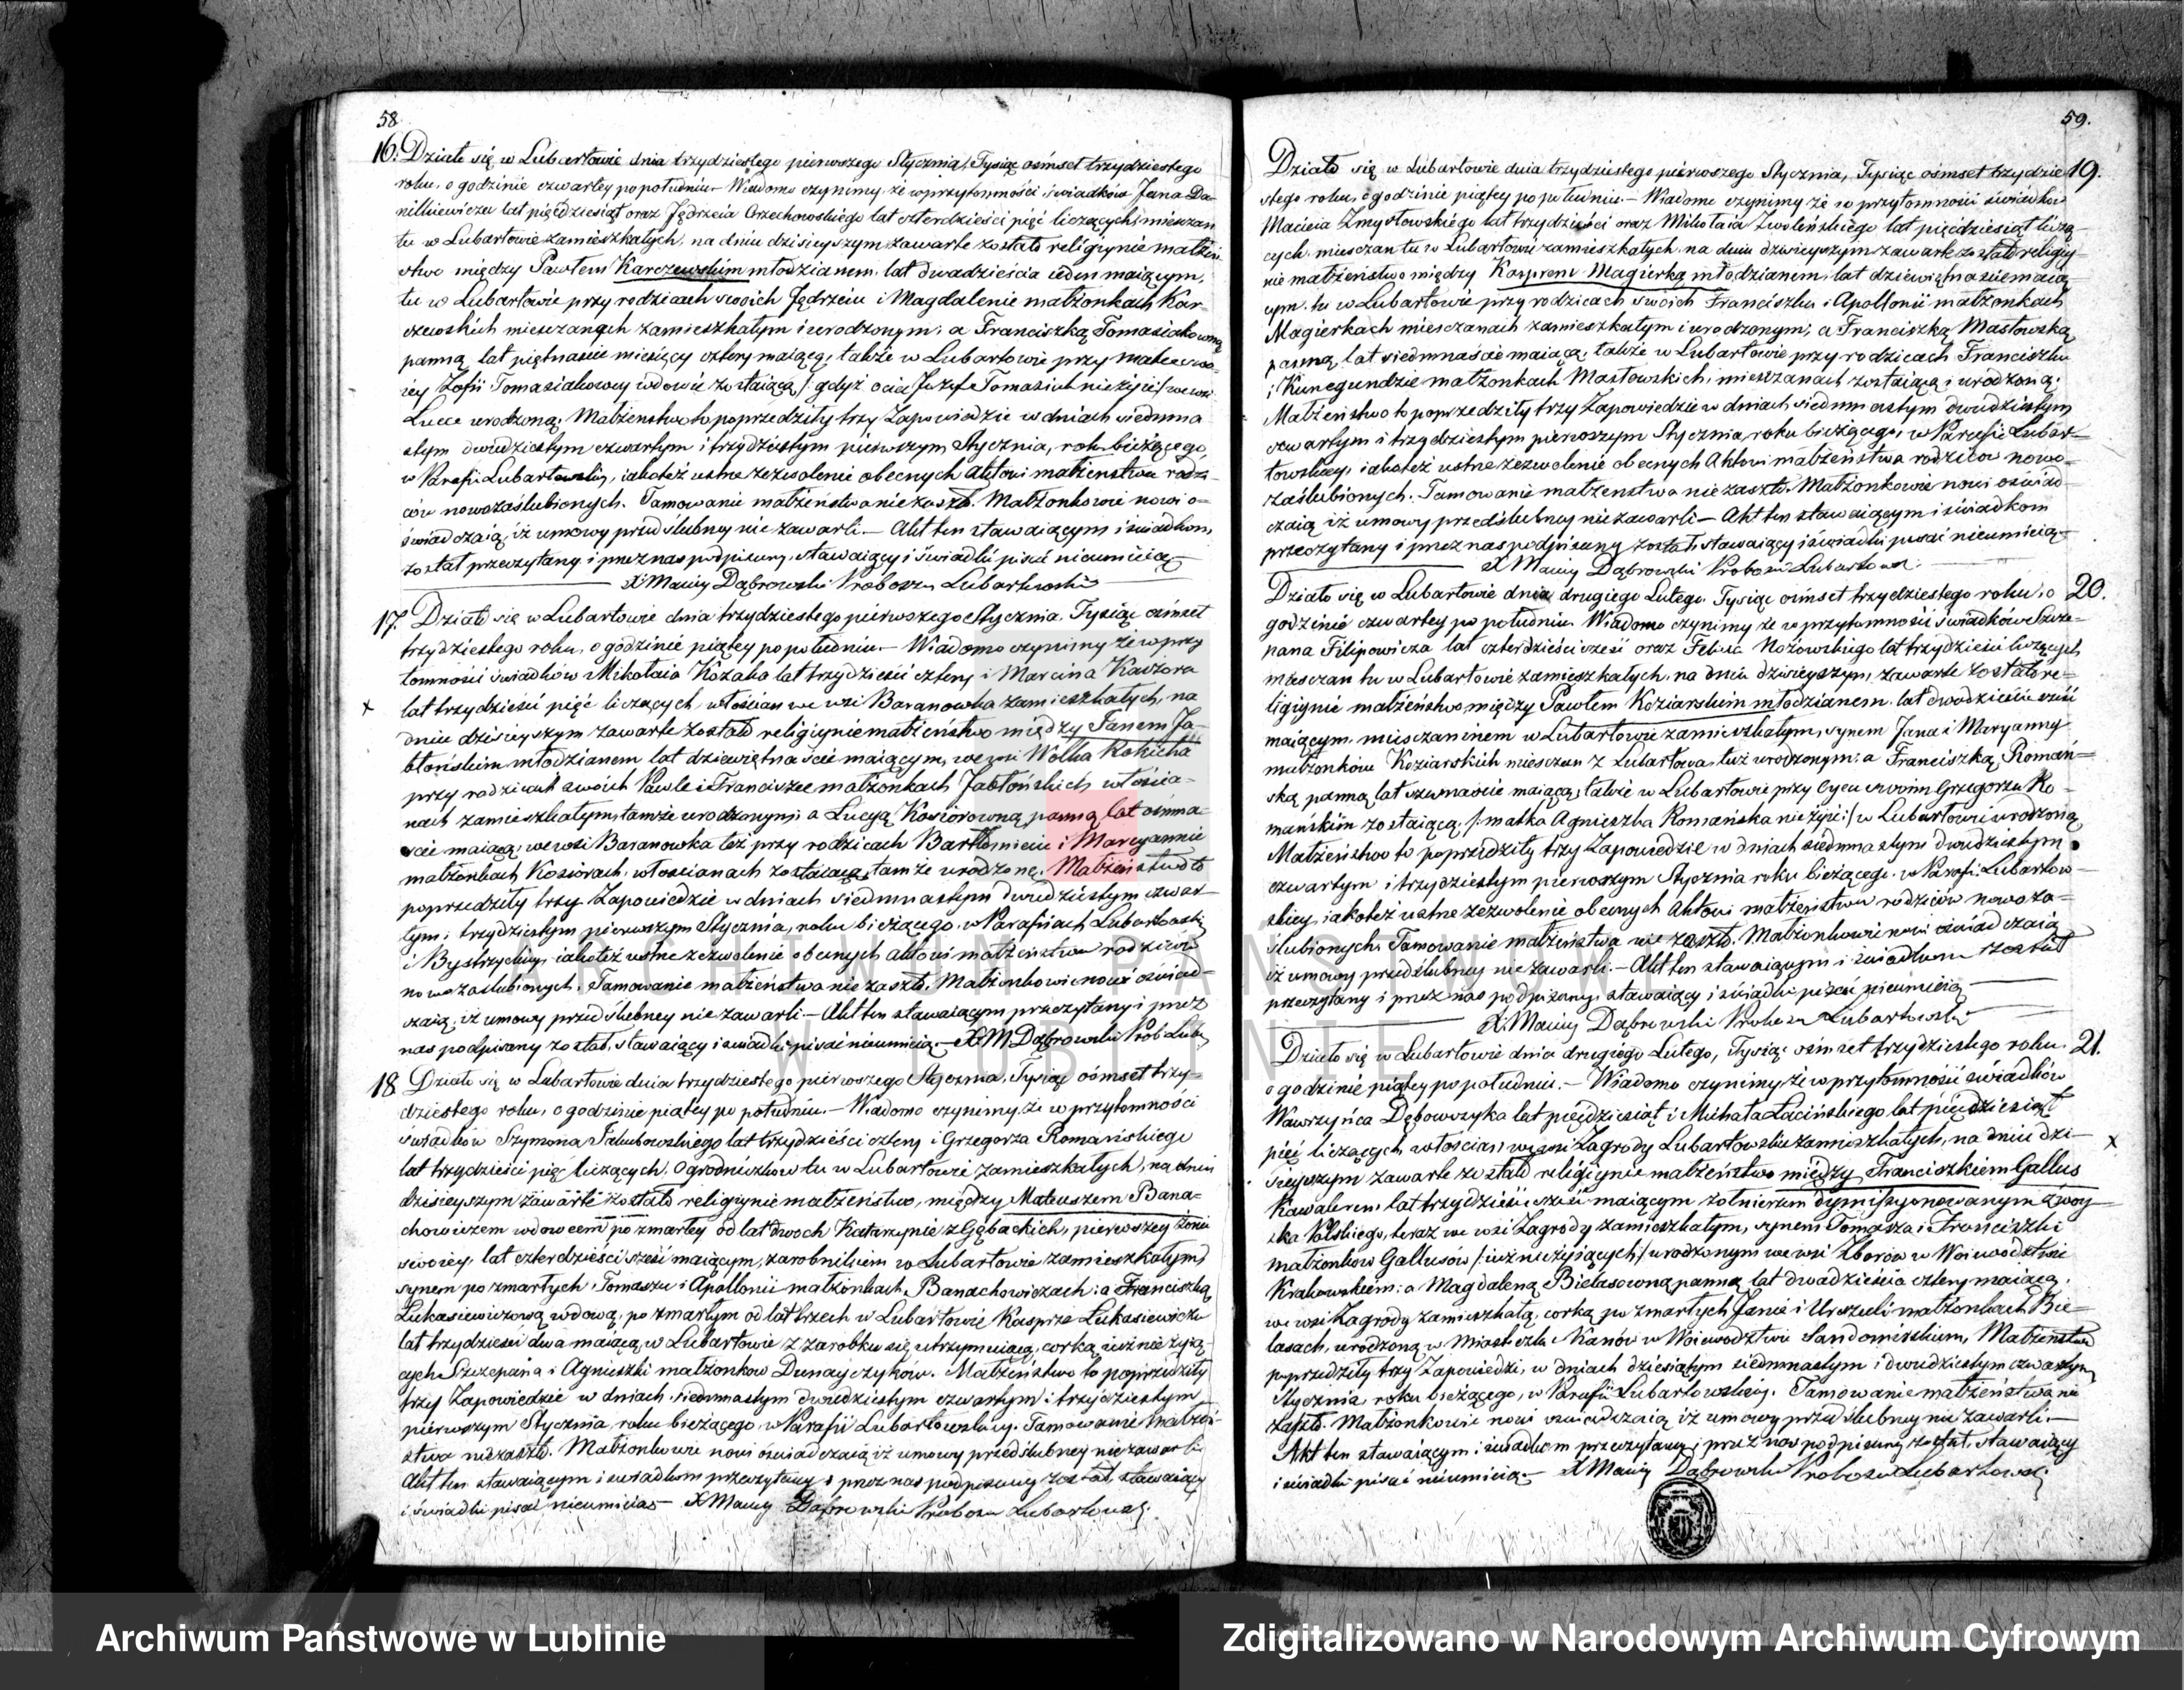 58
16. Działo się w Lubartowie dnia trzydziestego pierwszego Stycznia, Tysiąc ośmset trzydziestego
roku, o godzinie czwartey popołudniu – Wiadomo czynimy, że w przytomności świadków Jana Da-
nilkiewicza lat pięćdziesiąt oraz Jędrzeia Orzechowskiego lat czterdzieści pięć liczących, mieszczan
tu w Lubartowie zamieszkałych, na dniu dzisieyszym zawarte zostało religiynie małżeń
stwo między Pawłem Karczewskim młodzianem, lat dwadzieścia ieden maiącym,
tu w Lubartowie przy rodzicach swoich Jędrzeiu i Magdalenie małżonkach Kar-
czewskich mieszczanach zamieszkałym i urodzonym; a Franciszką Tomasiakowną
panną lat piętnaście miesięcy cztery maiącą, także w Lubartowie przy matce swo-
iey Zofii Tomasiakowey wdowie zostaiącą /: gdyż ociec Józef Tomasiak nie żyie :/ we wsi
urodzoną; Małżeństwo to poprzedziły trzy Zapowiedzie w dniach siedmna
stym dwudziestym czwartym i trzydziestym pierwszym Stycznia, roku bieżącego,
w Parafii Lubartowskiey, iakoteż ustne zezwolenie obecnych Aktowi małżeństwa rodzi-
ców nowozaślubionych. Tamowanie małżeństwa nie zaszło. Małżonkowie nowi o-
świadczaią, iż umowy przedślubney nie zawarli. – Akt ten stawaiącym i świadkom,
został przeczytany i przez nas podpisany, stawaiący i świadki pisać nieumieią –
X Maciey Dąbrowski Proboszcz Lubartowski
17. Działo się w Lubartowie dnia trzydziestego pierwszego Stycznia, Tysiąc ośmset
trzydziestego roku, o godzinie piątey popołudniu. – Wiadomo czynimy że w przy
tomności świadków Mikołaia Kozaka lat trzydzieści cztery i Marcina Kaszora
lat trzydzieści pięć liczących, włościan we wsi Baranowka zamieszkałych, na
dniu dzisieyszym zawarte zostało religiynie małżeństwo między Janem Ja-
błońskim młodzianem lat dziewiętnaście maiącym, we wsi Wolka Rokicka
przy rodzicach swoich Pawle i Franciszce małżonkach Jabłońskich włościa-
nach zamieszkałym, tamże urodzonym; a Lucyą Kosiorowną, panną lat ośmna-
ście maiącą, we wsi Baranowka też przy rodzicach Bartłomieiu i Maryannie
małżonkach Kosiorach, włościanach zostaiącą, tamże urodzoną. Małżeństwo to
poprzedziły trzy Zapowiedzie w dniach siedmnastym dwudziestym czwar-
tym i trzydziestym pierwszym Stycznia, roku bieżącego, w Parafiach Lubartowski
i Bystrzyckiey, iakoteż ustne zezwolenie obecnych aktowi małżeństwa rodziców
nowozaslubionych. Tamowanie małżeństwa nie zaszło. Małżonkowie nowi oświad-
czaią, iż umowy przedślubney nie zawarli – Akt ten stawaiącym przeczytany i przez
nas podpisany został, stawaiący i świadki pisać nieumieią. – X M Dąbrowski Prob Lub
18 Działo się w Lubartowie dnia trzydziestego pierwszego Stycznia, Tysiąc ośmset trzy-
dziestego roku, o godzinie piątey po południu. – Wiadomo czynimy, że w przytomności
świadków Szymona Jakubowskiego lat trzydzieści cztery i Grzegorza Romańskiego
lat trzydzieści pięć liczących, Ogrodniczków tu w Lubartowie zamieszkałych, na dniu
dzisieyszym zawarte zostało religiynie małżeństwo, między Mateuszem Bana-
chowiczem wdowcem po zmarłey od lat dwoch Katarzynie z Gębackich, pierwszey żonie
swoiey, lat czterdzieści sześć maiącym, zarobnikiem w Lubartowie zamieszkałym,
synem po zmarłych Tomaszu i Apollonii małżonkach Banachowiczach; a Franciszką
Łukasiewiczową wdową, po zmarłym od lat trzech w Lubartowie Kasprze Łukasiewiczu
lat trzydzieści dwa maiącą, w Lubartowie z zarobku się utrzymuiącą, corką iuż nie żyią-
cych Szczepana i Agnieszki małżonkow Dunayczyków. Małżeństwo to poprzedziły
trzy Zapowiedzie w dniach siedmnastym dwudziestym czwartym i trzydziestym
pierwszym Stycznia roku bieżącego, w Parafii Lubartowskiey. Tamowanie małżeń-
stwa nie zaszło. Małżonkowie nowi oświadczaią iż umowy przedślubney nie zawarli
Akt ten stawaiącym i świadkom przeczytany i przez nas podpisany został, stawaiący
i świadki pisać nieumieią – X Maciey Dąbrowski Proboszcz Lubartowski.
59.
Działo się w Lubartowie dnia trzydziestego pierwszego Stycznia, Tysiąc ośmset trzydzie- 19.
stego roku, o godzinie piątey po południu – Wiadomo czynimy że w przytomności świadków
Macieia Zmysłowskiego lat trzydzieści oraz Mikołaia Zwoleńskiego lat pięćdziesiąt liczą-
cych, mieszczan tu w Lubartowie zamieszkałych, na dniu dzisieyszym zawarte zostało religiy-
nie małżeństwo między Kasprem Magierką młodzianem, lat dziewiętnaście maią-
cym, tu w Lubartowie przy rodzicach swoich Franciszku i Apollonii małżonkach
Magierkach mieszczanach zamieszkałym i urodzonym; a Franciszką Masłowską
panną, lat siedmnaście maiącą, także w Lubartowie przy rodzicach Franciszku
i Kunegundzie małżonkach Masłowskich, mieszczanach zostaiącą i urodzoną.
Małżeństwo to poprzedziły trzy Zapowiedzie w dniach siedmnastym dwudziestym
czwartym i trzydziestym pierwszym Stycznia, roku bieżącego, w Parafii Lubar-
towskiey, iakoteż ustne zezwolenie obecnych Aktowi małżeństwa rodziców nowo-
zaślubionych. Tamowanie małżenstwa nie zaszło. Małżonkowie nowi oświad-
czaią iż umowy przedślubney nie zawarli – Akt ten stawaiącym i świadkom
przeczytany i przez nas podpisany został, stawaiący i świadki pisać nieumieią –
X Maciey Dąbrowski Proboszcz Lubartowski
Działo się w Lubartowie dnia drugiego Lutego, Tysiąc ośmset trzydziestego roku, o 20.
godzinie czwartey po południu. Wiadomo czynimy że w przytomności świadków Szcze-
pana Filipowicza lat czterdzieści sześć oraz Felixa Nożowskiego lat trzydzieści liczących
mieszczan tu w Lubartowie zamieszkałych, na dniu dzisieyszym, zawarte zostało re-
ligiynie małżeństwo między Pawłem Koziarskim młodzianem, lat dwadzieścia sześć
maiącym, mieszczaninem w Lubartowie zamieszkałym, synem Jana i Maryanny
małżonków Koziarskich mieszczan z Lubartowa, tuż urodzonym; a Franciszką Romań-
ską panną lat szesnaście maiącą, także w Lubartowie przy Oycu swoim Grzegorzu Ro-
mańskim zostaiącą, /: matka Agnieszka Romańska nie żyie :/ w Lubartowie urodzoną
Małżeństwo to poprzedziły trzy Zapowiedzie w dniach siedmnastym dwudziestym
czwartym i trzydziestym pierwszym Stycznia roku bieżącego, w Parafii Lubartow-
skiey, iakoteż ustne zezwolenie obecnych Aktowi małżeństwa rodziców nowoza-
ślubionych. Tamowanie małżeństwa nie zaszło. Małżonkowie nowi oświadczaią
iż umowy przedślubney nie zawarli. – Akt ten stawaiącym i świadkom został
przeczytany i przez nas podpisany, stawaiący i świadki pisać nieumieią –
X. Maciey Dąbrowski Proboszcz Lubartowski
Działo się w Lubartowie dnia drugiego Lutego, Tysiąc ośmset trzydziestego roku, 21.
o godzinie piątey po południu. – Wiadomo czynimy że w przytomności świadków
Wawrzyńca Dębowczyka lat pięćdziesiąt i Michała Łacińskiego lat pięćdziesiąt
pięć liczących włościan we wsi Zagrody Lubartowskie zamieszkałych, na dniu dzi-
sieyszym zawarte zostało religiynie małżeństwo między Franciszkiem Gallus
Kawalerem, lat trzydzieści sześć maiącym żołnierzem dymissyonowanym z woy-
ska Polskiego, teraz we wsi Zagrody zamieszkałym, synem Tomasza i Franciszki
małżonkow Gallusów /: iuż nieżyiących :/ urodzonym we wsi Zborów w Woiewodztwie
Krakowskiem; a Magdaleną Bielasowną panną, lat dwadzieścia cztery maiącą,
we wsi Zagrody zamieszkałą, corką po zmarłych Janie i Urszuli małżonkach Bie-
lasach, urodzoną w Miasteczku Kanów w Woiewodztwie Sandomirskiem, Małżeństwo
poprzedziły trzy Zapowiedzi, w dniach dziesiątym siedmnastym i dwudziestym czwartym
Stycznia, roku bieżącego, w Parafii Lubartowskiey. Tamowanie małżeństwa nie
zaszło. Małżonkowie nowi oświadczaią iż umowy przedślubney nie zawarli. –
Akt ten stawaiącym i świadkom przeczytany i przez nas podpisany został, stawaiący
i świadki pisać nieumieią – X Maciey Dąbrowski Proboszcz Lubartowski
ARCHIWUM PAŃSTWOWE
W LUBLINIE
Archiwum Państwowe w Lublinie
Zdigitalizowano w Narodowym Archiwum Cyfrowym